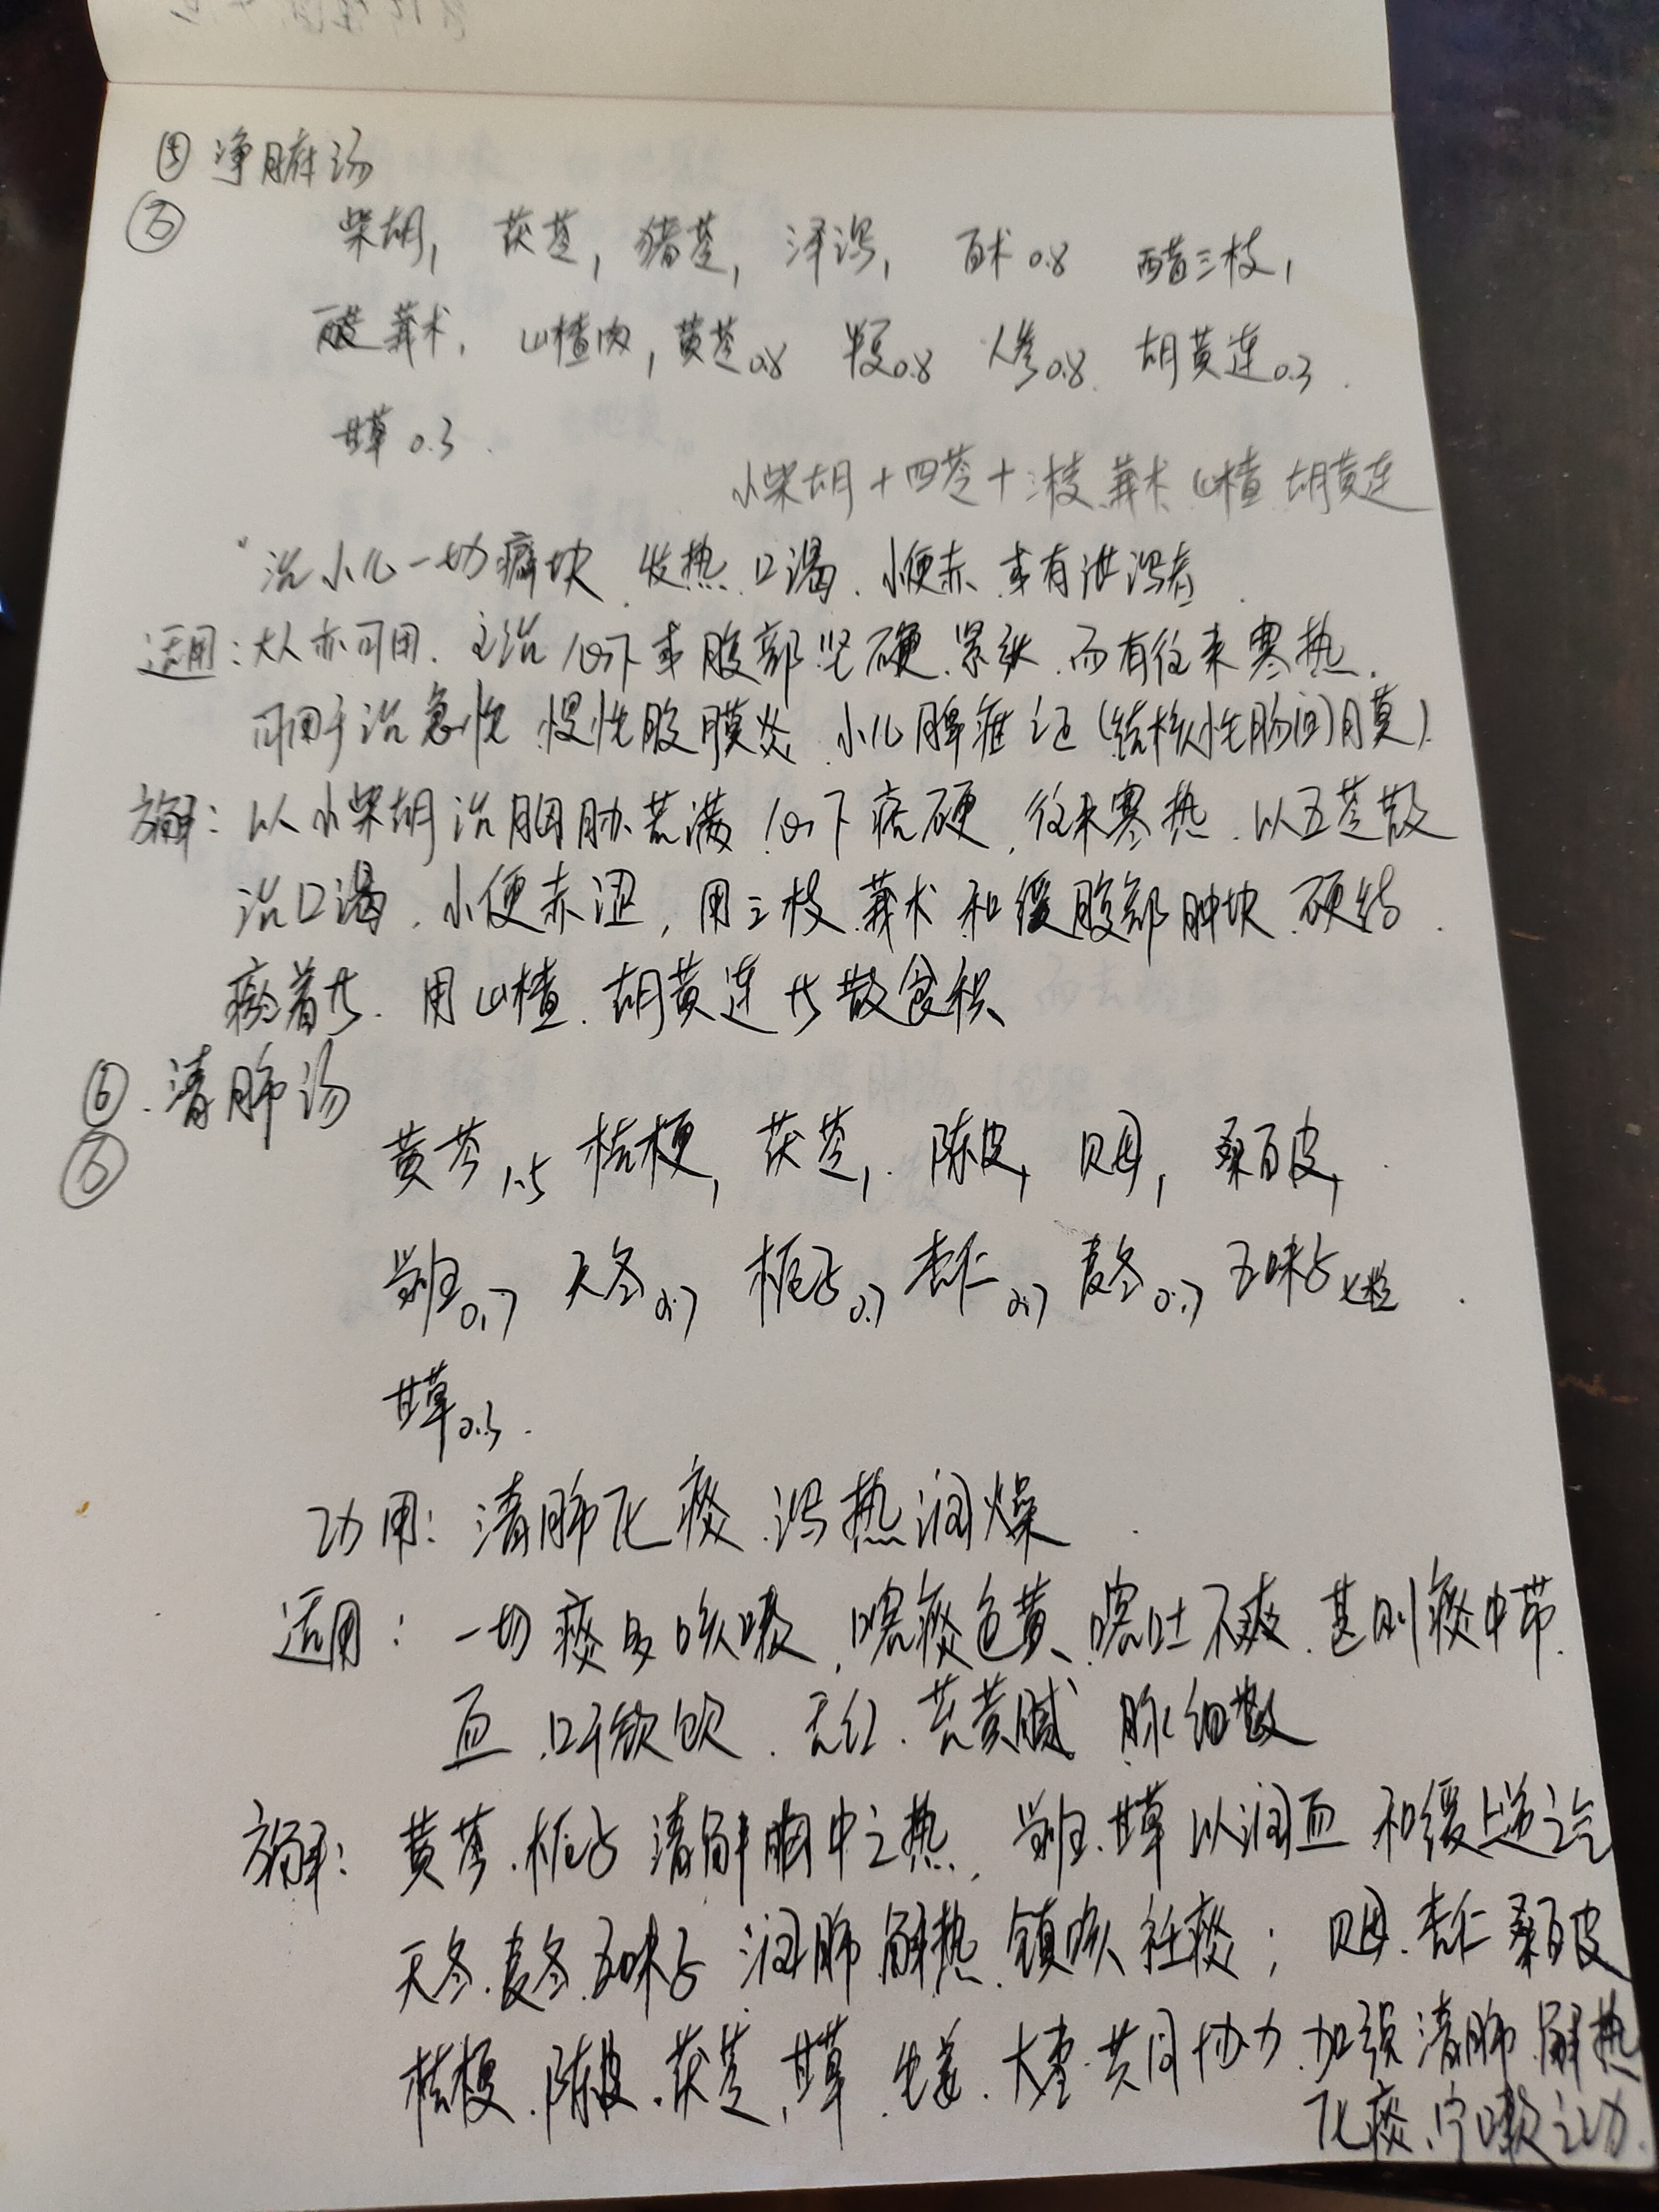 ⑤ 净腑汤
柴胡1 茯苓1 猪苓1 泽泻1 白术0.8 醋三枝1
醋莪术1 山楂肉1 黄芩0.8 半夏0.8 人参0.8 胡黄连0.3
甘草0.3
小柴胡+四苓+三枝 莪术 山楂 胡黄连
治小儿一切癖块、发热、口渴、小便赤、或有泄泻者
适用:大人亦可用、主治心下或腹部坚硬、紧张、而有往来寒热、
可用于治急性 慢性腹膜炎、小儿脾疳证(结核性肠间膜)
方解:以小柴胡治胸胁苦满、心下痞硬、往来寒热、以五苓散
治口渴、小便赤涩,用三枝、莪术和缓腹部肿块、硬结
用山楂、胡黄连 散食积、
⑥、清肺汤
黄芩1.5 桔梗1 茯苓1 陈皮1 贝母1 桑白皮1
当归0.7 天冬0.7 栀子0.7 杏仁0.7 麦冬0.7 五味子七粒
甘草0.3
功用:清肺化痰、泻热润燥
适用:一切痰多咳嗽、咯痰色黄、咯吐不爽、甚则痰中带
血、口干欲饮、舌红、苔黄腻 脉细数
方解:黄芩、栀子清解胸中之热、当归、甘草以润血 和缓上逆之气
天冬、麦冬、五味子 润肺、解热、镇咳、祛痰;贝母、杏仁 桑白皮
桔梗、陈皮、茯苓、甘草、生姜、大枣、共同协力、加强清肺、解热
化痰、宁嗽之功、